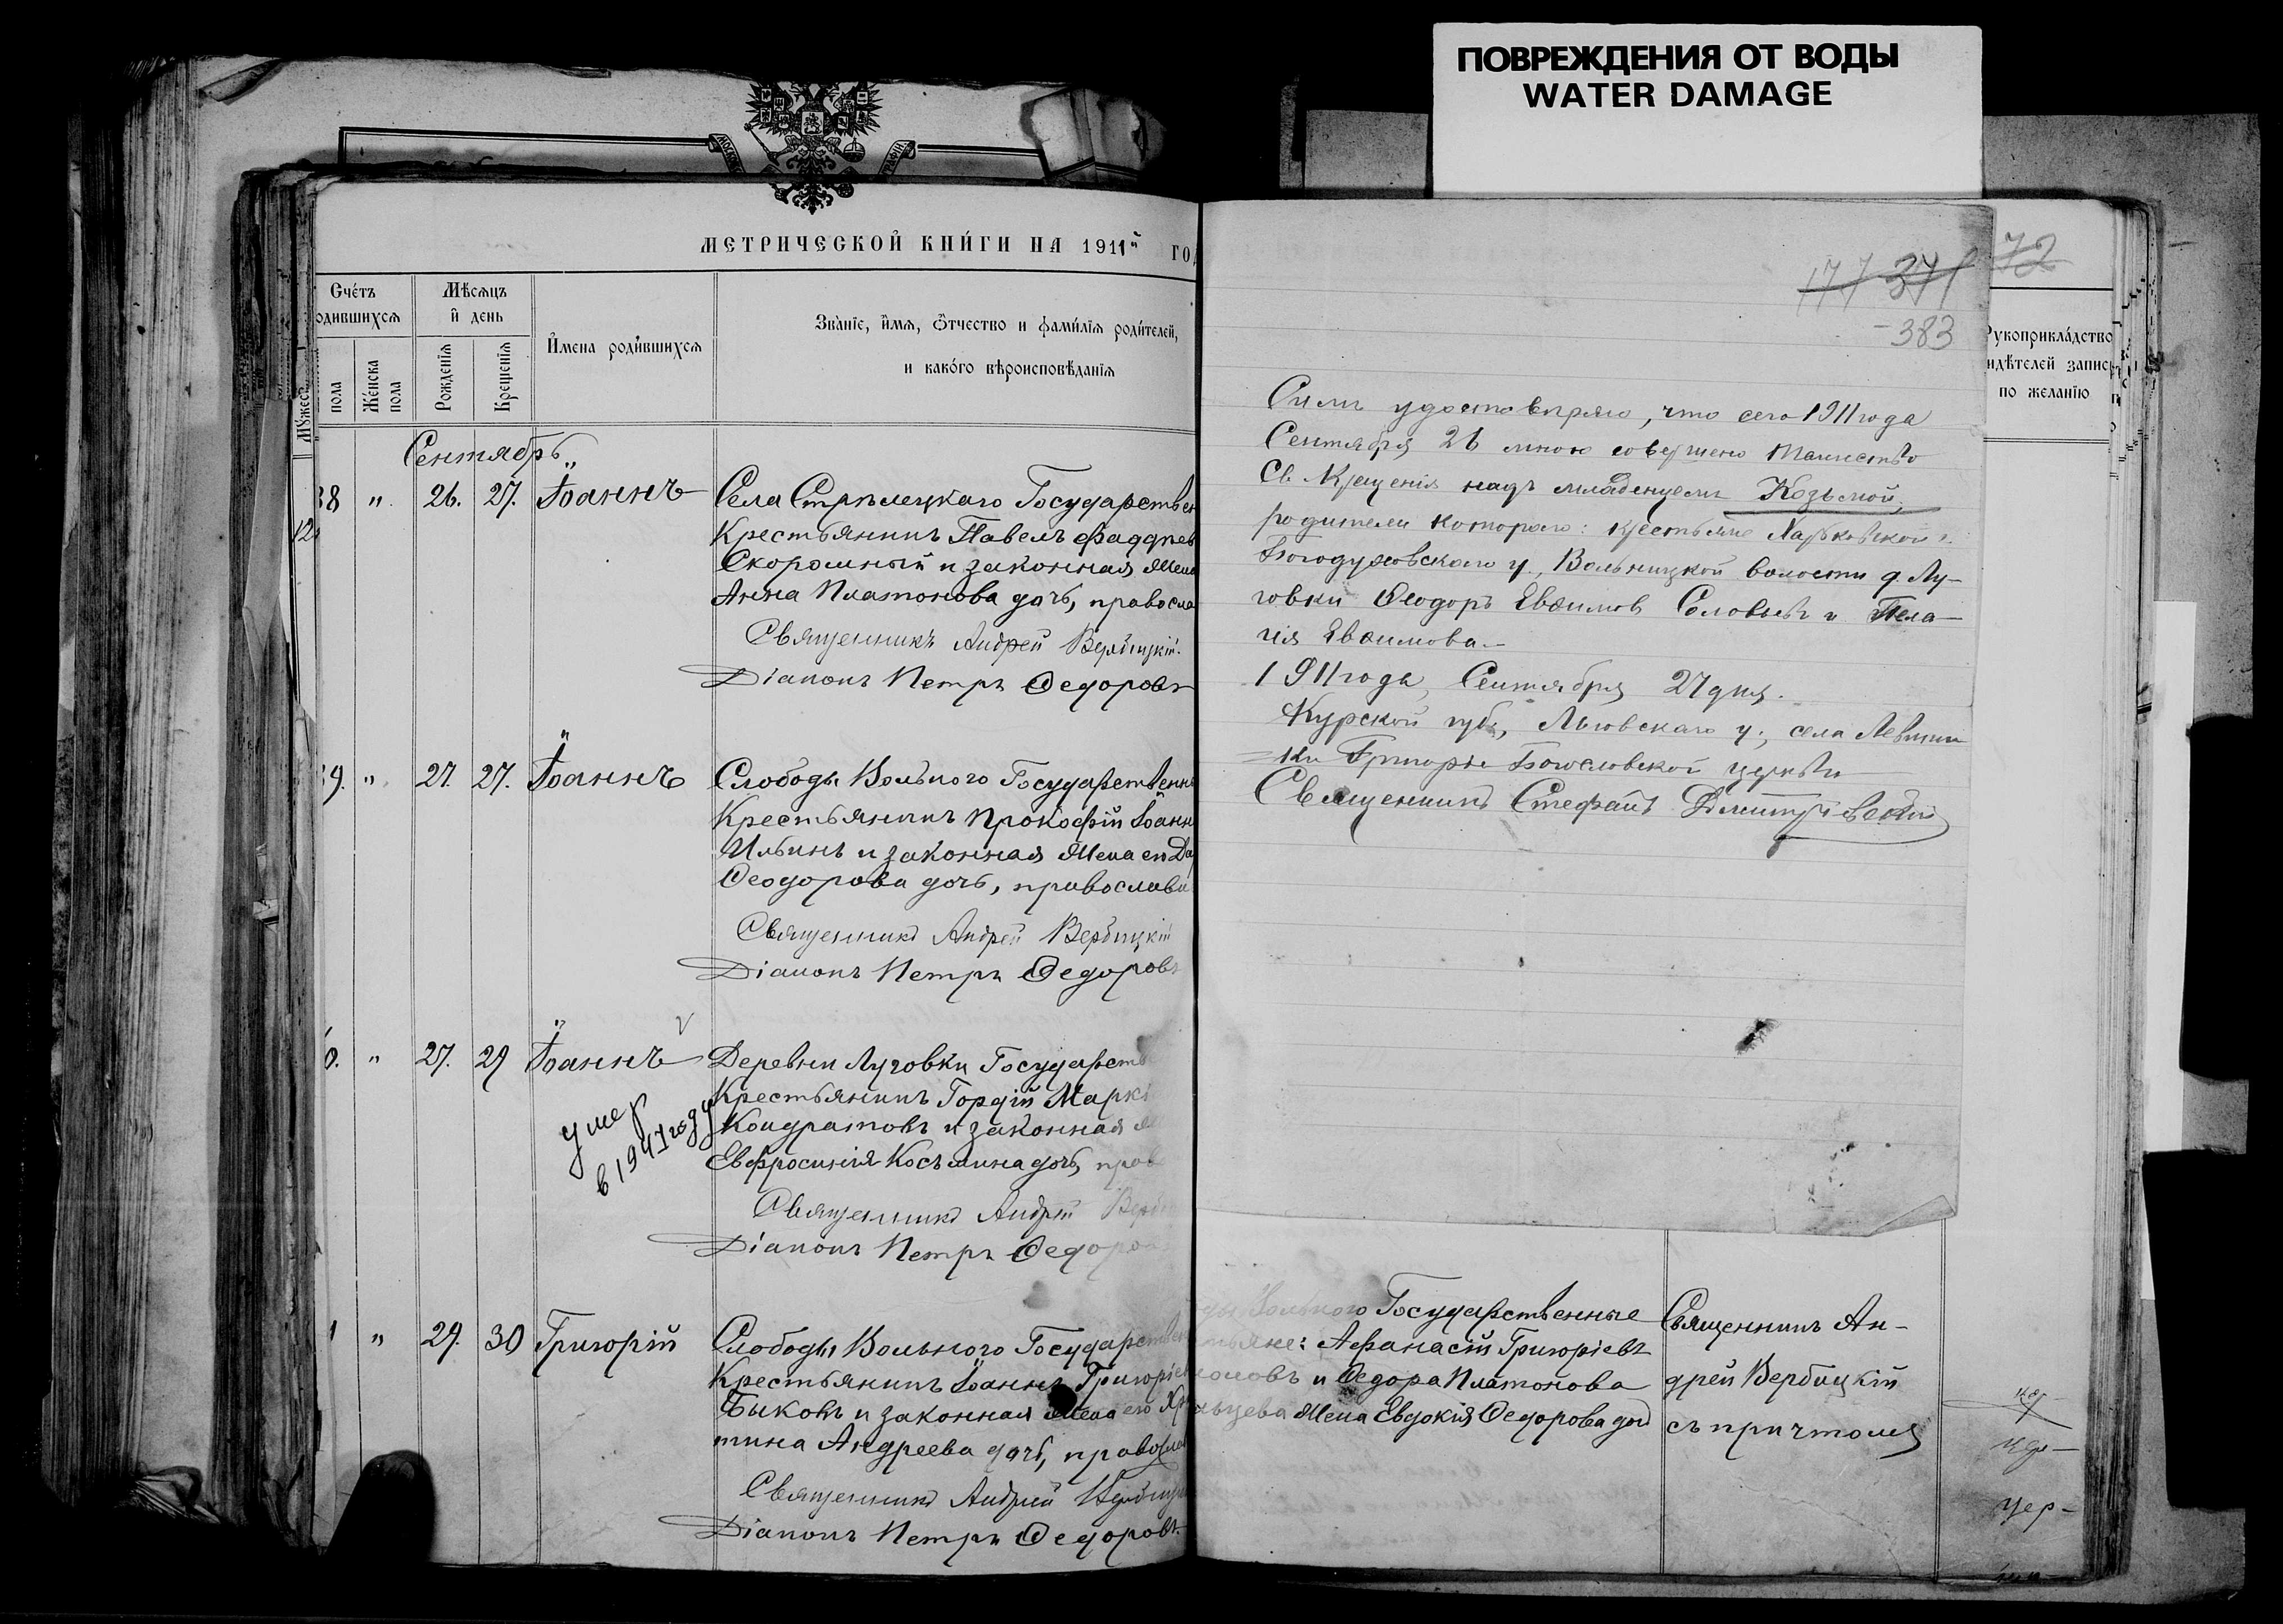 ПОВРЕЖДЕНИЯ ОТ ВОДЫ
WATER DAMAGE
МЕТРИЧЕСКОЙ КНИ́ГИ НА 1911й ГО
Сче́тъ
одившихсѧ
Мѣсѧцъ
и́ день
И҆мена роди́вшихсѧ
Зва́нїе, и҆́мѧ, ѻ҆́тчество и фами́лїѧ роди́телей,
и како́го вѣроисповѣ́данїѧ
Мꙋжеск
пола
Же́нска
пола
Рожденїѧ
Крещенїѧ
Сентябрь
38 " 26. 27. Іоаннъ Села Стрѣлецкаго Государствен
Крестьянинъ Павелъ Фаддѣев
Скоромный и законная жена
Анна Платонова дочь, правосла
Священникъ Андрей Вербицкій.
Діаконъ Петръ Ѳедоровъ
9. " 27. 27. Іоаннъ Слободы Вольного Государственн
Крестьянинъ Прокофій Іоанн
Ильинъ и законная жена его Да
Ѳеодорова дочь, православн
Священникъ Андрей Вербицкій
Діаконъ Петръ Ѳедоровъ
0. " 27. 29 Іоаннъ Деревни Луговки Государств
Крестьянинъ Гордій Маркі
Кондратовъ и законная ж
Евфросинія Косьмина дочь, прав
умер
в 1941 году
Священникъ Андрей Верби
Діаконъ Петръ Ѳедоров
1 " 29. 30 Григорій Слободы Вольного Государствен
Крестьянинъ Іоаннъ Григоріев
Быковъ и законная жена его Хри
тина Андреева дочь, правосла
Священникъ Андрей Вербицк
Діаконъ Петръ Ѳедоровъ.
177 371 72
383
Рꙋкоприкла́дство
идѣ́телей запис
по желанїю
Симъ удостовѣряю, что сего 1911 года
Сентября 26 мною совершено таинство
Св. Крещенія надъ младенцемъ Козьмой,
родители котораго: крестьяне Харьковской г.
Богодуховскаго у., Вольницкой волости д. Лу-
говки Ѳеодоръ Евѳимов Соловьевъ и Пела-
гія Евѳимова.
1911 года, Сентября 27 дня.
Курской губ., Льговскаго у., села Левшин
ки Григорье Богословской церкви
Священникъ Стефанъ Дмитріевскій
ды Вольного Государственные
тьяне: Аѳанасій Григоріевъ
оловъ и Ѳедора Платонова
льцева жена Евдокія Ѳедорова дочь
Священникъ Ан-
дрей Вербицкій
съ причтомъ
цер-